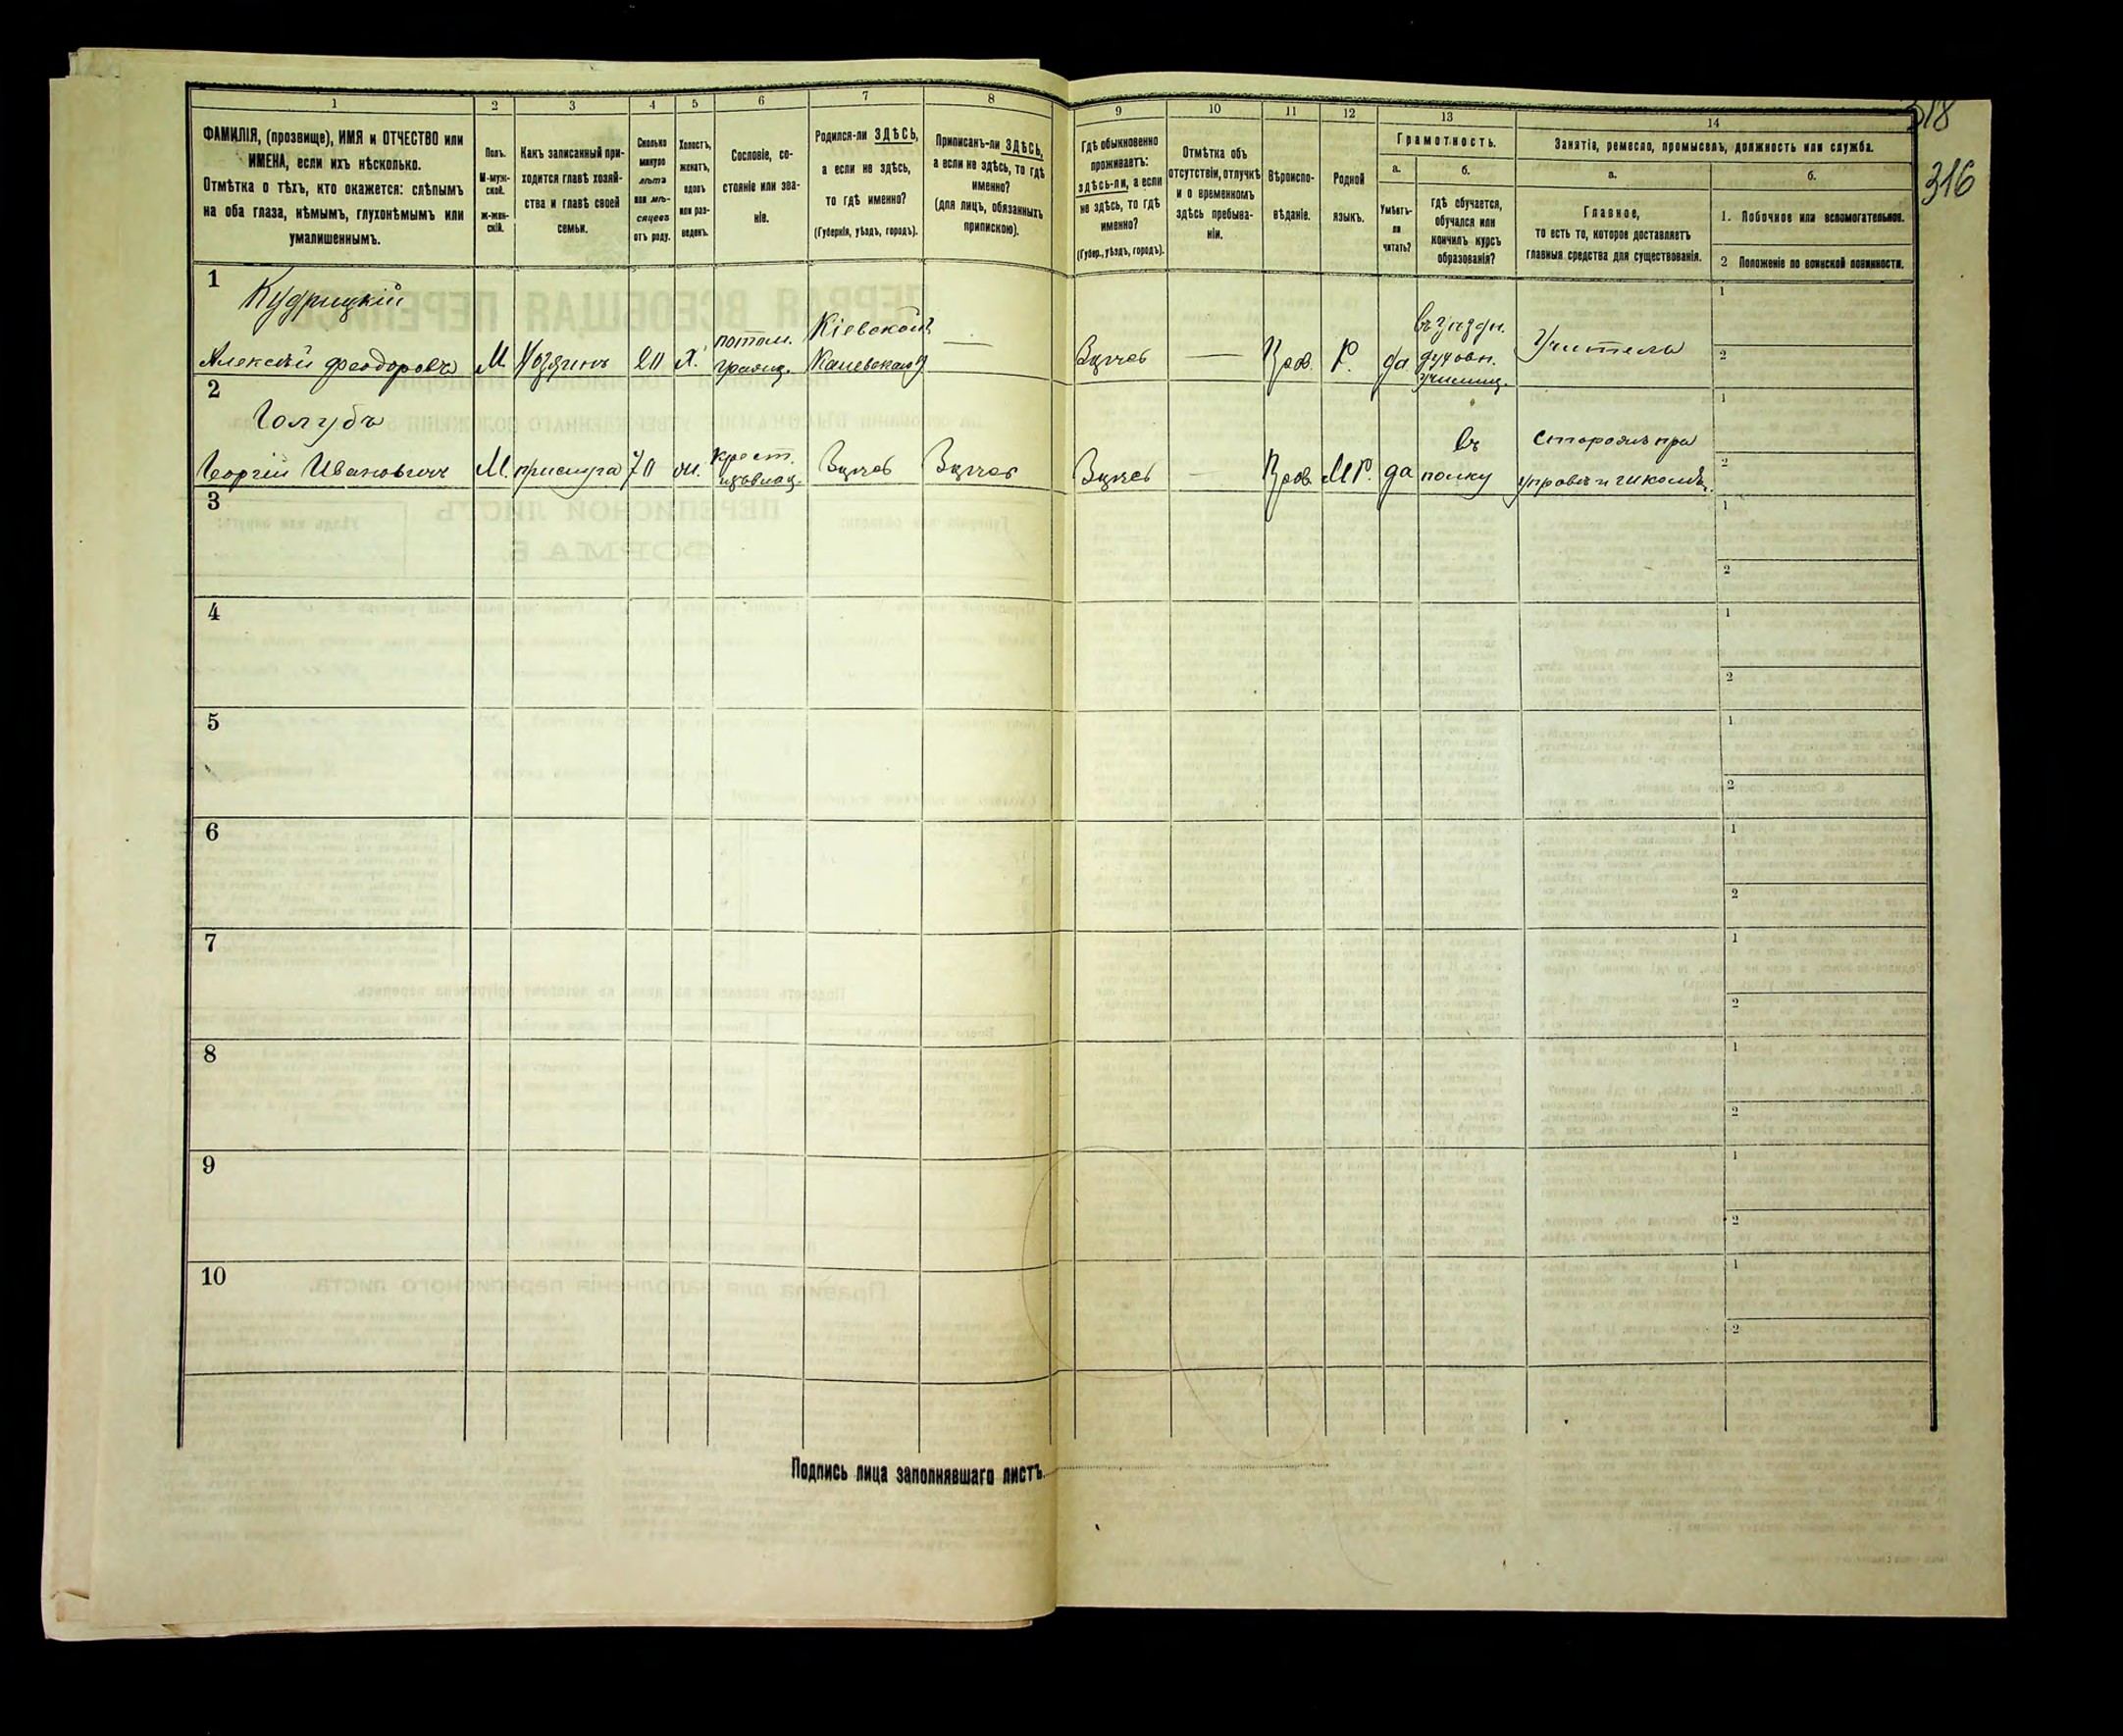 318
316
1
2
3
4
5
6
7
8
9
10
11
12
13
14
ФАМИЛІЯ, (прозвище), ИМЯ и ОТЧЕСТВО или
ИМЕНА, если ихъ нѣсколько.
Отмѣтка о тѣхъ, кто окажется: слѣпымъ
на оба глаза, нѣмымъ, глухонѣмымъ или
умалишеннымъ.
Полъ.
М-муж-
ской.
ж-жен-
скій.
Какъ записанный при-
ходится главѣ хозяй-
ства и главѣ своей
семьи.
Сколько
минуло
лѣтъ
или мѣ-
сяцевъ
отъ роду.
Холостъ,
женатъ,
вдовъ
или раз-
веденъ.
Сословіе, со-
стояніе или зва-
ніе.
Родился-ли ЗДѢСЬ,
а если не здѣсь,
то гдѣ именно?
(Губернія, уѣздъ, городъ).
Приписанъ-ли ЗДѢСЬ,
а если не здѣсь, то гдѣ
именно?
(для лицъ, обязанныхъ
припискою).
Гдѣ обыкновенно
проживаетъ:
здѣсь-ли, а если
не здѣсь, то гдѣ
именно?
(Губер., уѣздъ, городъ).
Отмѣтка объ
отсутствіи, отлучкѣ
и о временномъ
здѣсь пребыва-
ніи.
Вѣроиспо-
вѣданіе.
Родной
языкъ.
Грамотность.
а.
Умѣетъ-
ли
читать?
б.
гдѣ обучается,
обучался или
кончилъ курсъ
образованія?
Занятіе, ремесло, промыселъ, должность или служба.
а.
Главное,
то есть то, которое доставляетъ
главныя средства для существованія.
б.
1. Побочное или вспомогательное.
2 Положеніе по воинской повинности.
1
Кудрицкій
Алексѣй Феодоровъ
М
Хозяинъ
20
Х.
потом.
Кіевской
Каневскаго
—
Здѣсь
—
Прав.
Р.
да
духовн.
училищ.
Учитель
1
2
2
Голубъ
Георгій Ивановичъ
М.
прислуга
70
ж.
крест.
Здѣсь
Здѣсь
Здѣсь
—
Прав.
МР.
да
въ
полку
Сторожъ при
1
2
3
1
2
4
1
2
5
1
2
6
1
2
7
1
2
8
1
2
9
1
2
10
1
2
Подпись лица заполнявшаго листъ